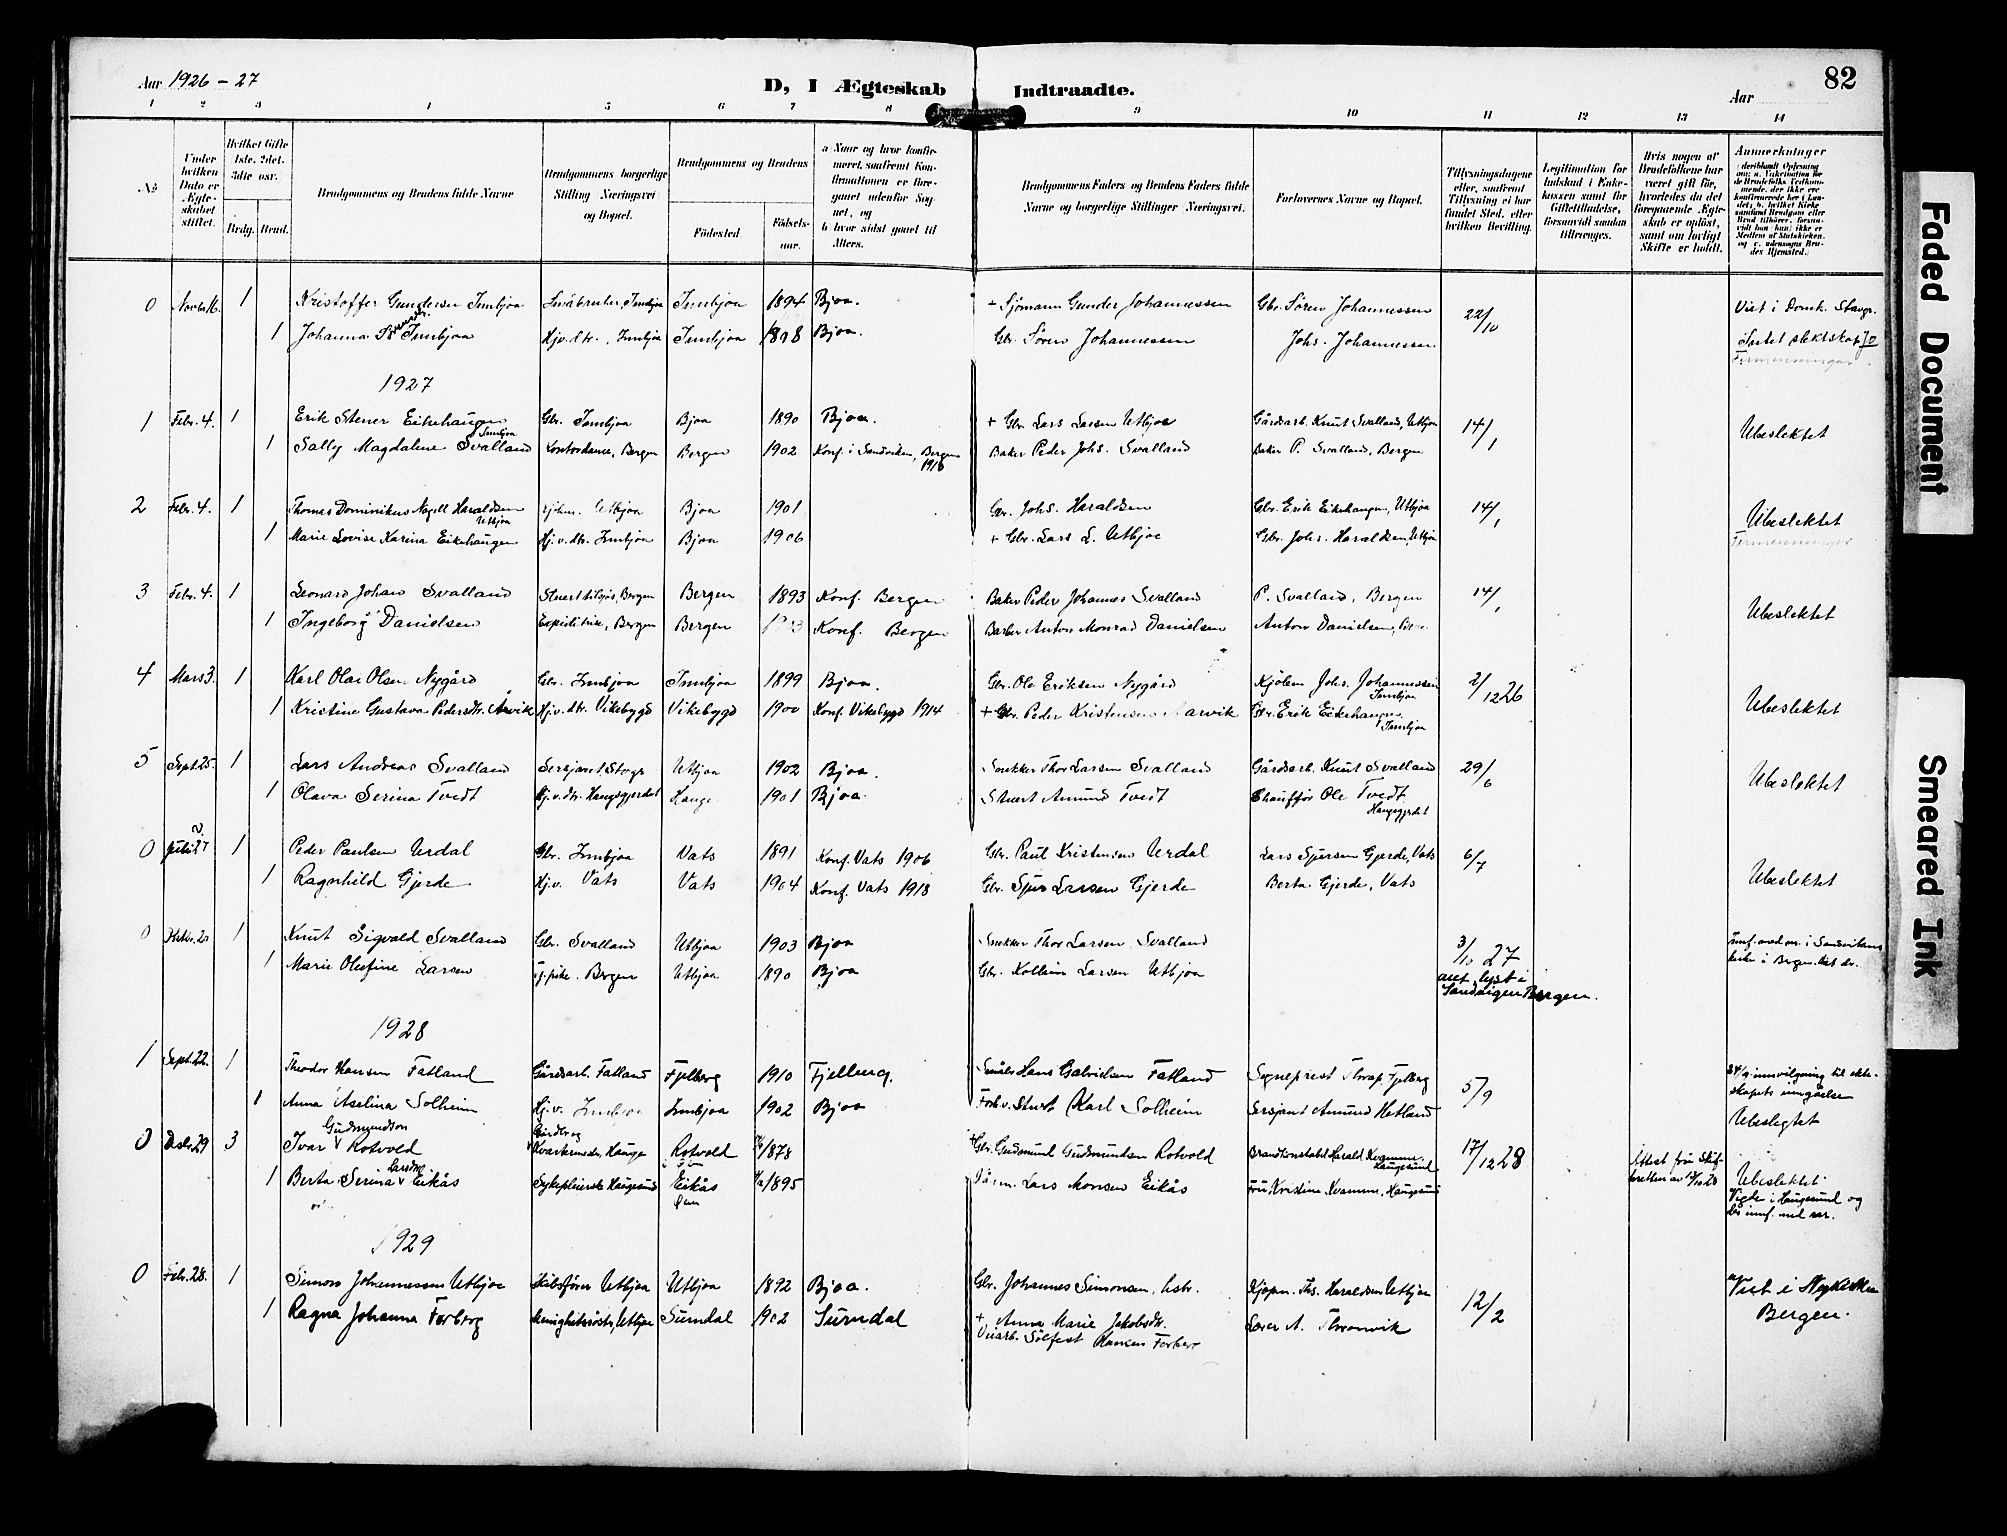 Aar 1926-27
D, I Ægteskab Indtraadte.
Aar
82
1 2 3 4 5 6 7 8 9 10 11 12 13 14
No
Under hvilken Dato er Ægteskabet stiftet.
Hvilket Gifte 1ste, 2det, 3die osv.
Brdg. Brud.
Brudgommens og Brudens fulde Navne
Brudgommens borgerlige Stilling Næringsvei og Bopæl.
Brudgommens og Brudens
Fødested
Fødselsaar.
a Naar og hvor konfirmeret, saafremt Konfirmationen er foregaaet udenfor Sognet, og
b hvor sidst gaaet til Alters.
Brudgommens Faders og Brudens Faders fulde Navne og borgerlige Stillinger Næringsvei.
Forlovernes Navne og Bopæl.
Tillysningsdagene eller, saafremt Tillysning ei har fundet Sted, efter hvilken Bevilling.
Legitimation for Indskud i Enkekassen samt for Giftetilladelse, forsaavidt saadan tiltrænges.
Hvis nogen af Brudefolkene har været gift før, hvorledes da det foregaaende Ægteskab er opløst, samt om lovligt Skifte er holdt.
Anmærkninger
0 Novbr. 16. 1 Kristoffer Gundersen Innbjoa Småbruker, Innbjoa Innbjoa 1894 Bjoa. + Sjömann Gunder Johannessen Gbr. Sören Johannessen 22/10 Viet i Domk. Stavgr.
1 Johanna Innbjoa Hj.v.dtr., Innbjoa Innbjoa 1898 Bjoa. Gbr. Sören Johannessen Johs. Johannessen Intet slektskap
1927
1 Febr. 4. 1 Erik Stener Eikehaugen Gbr. Innbjoa Bjoa 1890 Bjoa. + Gbr. Lars Larsen Utbjoa Gårdsarb. Knut Svalland, Utbjoa 14/1 Ubeslektet
1 Sally Magdalene Svalland Kontordame, Bergen Bergen 1902 Konf. i Sandviken, Bergen 1916 Baker Peder Johs. Svalland Baker P. Svalland, Bergen
2 Febr. 4. 1 Thomas Dominikus Nagell Haraldsen Utbjoa Sjöm. Utbjoa Bjoa 1901 Gbr. Johs. Haraldsen Gbr. Erik Eikehaugen, Utbjoa 14/1 Ubeslektet
1 Marie Lovise Karina Eikehaugen Hj.v.dtr. Innbjoa Bjoa 1906 + Gbr. Lars L. Utbjoa Gbr. Johs. Haraldsen, Utbjoa
3 Febr. 4. 1 Leonard Johan Svalland Bergen Bergen 1893 Konf. Bergen Baker Peder Johannes Svalland P. Svalland, Bergen 14/1 Ubeslektet
1 Ingeborg Danielsen Expeditrise, Bergen Bergen Konf. Bergen Barber Anton Monrad Danielsen Anton Danielsen,
4 Mars 3. 1 Karl Olai Olsen Nygård Gbr. Innbjoa Innbjoa 1899 Bjoa. Gbr. Ole Eriksen Nygård Kjölem. Johs. Johannessen Innbjoa 2/12 26 Ubeslektet
1 Kristine Gustava Pedersdtr. Årvik Hj.v.dtr. Vikebygd Vikebygd 1900 Konf. Vikebygd 1914 + Gbr. Peder Kristensen Aarvik Gbr. Erik Eikehaugen, Innbjoa
5 Sept. 25. 1 Lars Andreas Svalland Sersjant, Stvgr Utbjoa 1902 Bjoa. Snekker Thor Larsen Svalland Gårdsarb. Knut Svalland 29/6 Ubeslektet
1 Olava Serina Tvedt Hj.v.dtr. Haugsgjerdet Hauge 1901 Bjoa. Stuert Amund Tvedt Chauffør Ole Tvedt Haugsgjerdet
0 Juli 27 1 Peder Paulsen Urdal Gbr. Innbjoa Vats 1891 Konf. Vats 1906 Gbr. Paul Kristensen Urdal Lars Sjursen Gjerde, Vats 6/7 Ubeslektet
1 Ragnhild Gjerde Hj.v. Vats Vats 1904 Konf. Vats 1918 Gbr. Sjur Larsen Gjerde Berta Gjerde, Vats
0 1 Knut Sigvald Svalland Gbr. Svalland Utbjoa 1903 Bjoa Snekker Thor Larsen Svalland 3/10 27
1 Marie Olufine Larsen Bergen Utbjoa 1890 Bjoa Gbr. Kolbein Larsen Utbjoa lyst i Sandvigen Bergen.
1928
1 Sept. 22. 1 Theodor Hansen Fatland Gårdsarb. Fatland Fjelberg 1910 Fjelberg. Hans Gabrielsen Fatland Sogneprest Thrap, Fjelberg 5/9 24/9 innvilgning til ekteskapets inngåelse
1 Anna Aselina Solheim Hj.v. Innbjoa Innbjoa 1902 Bjoa Karl Solheim Sersjant Amund Hetland Ubeslegtet
0 Desbr. 29 3 Ivar Gudmundson Rotvold Rotvold 1878 + Gbr. Gudmund Gudmundsen Rotvold Brandkonstabel Harald Kvamme, Haugesund 17/12 28 Attest fra Skifteretten av
1 Berta Serina Larsdtr. Eikås Sykepleierske Haugesund Eikås Ølen 1895 Lars Monsen Eikås Fru Kristine Kvamme, Haugesund Ubeslektet
Vigde i Haugesund og
1929
0 Febr. 28. 1 Simon Johannessen Utbjoa Skibsfører Utbjoa Utbjoa 1892 Bjoa. Gbr. Johannes Simonsen, Kjöpm. Ths. Haraldsen Utbjoa 12/2 Viet i Nykirken Bergen.
1 Ragna Johanna Forberg Menighetssöster, Utbjoa Surndal 1902 Surndal + Anna Marie Jakobsdtr. Lærer A. Thronvik
Veiarb. Sølfest Hansen Forberg
Faded Document
Smeared Ink